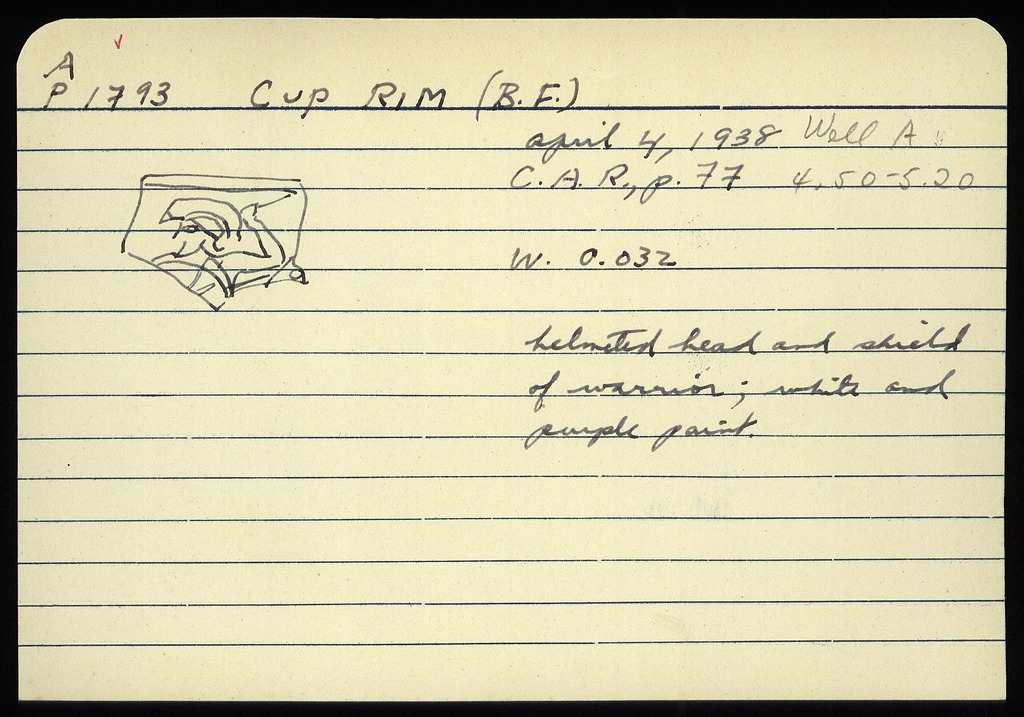 A
P 1793 Cup RIM (B.F.)
april 4, 1938 Well A
C.A.R., p. 77 4.50-5.20
W. 0.032
helmeted head and shield
of warrior; white and
purple paint.